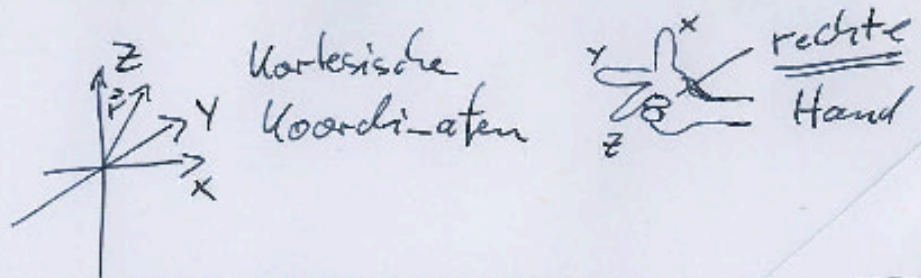 Z
r
Y
X
Kartesische
Koordinaten
X
Y
Z
rechte
Hand